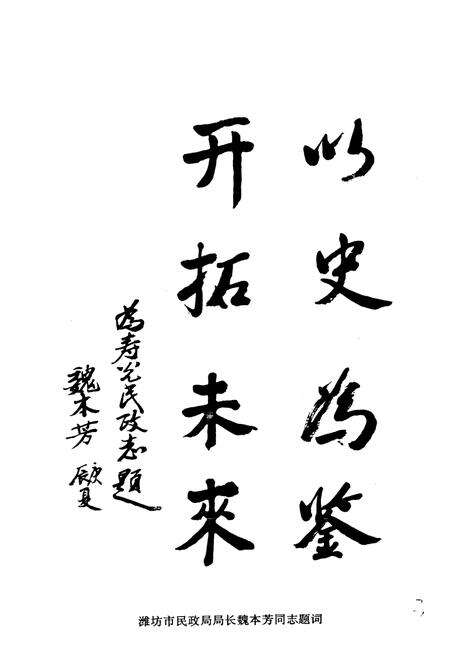 以史为鉴
开拓未來
为寿光民政志题
魏本芳
庚辰夏
潍坊市民政局局长魏本芳同志题词